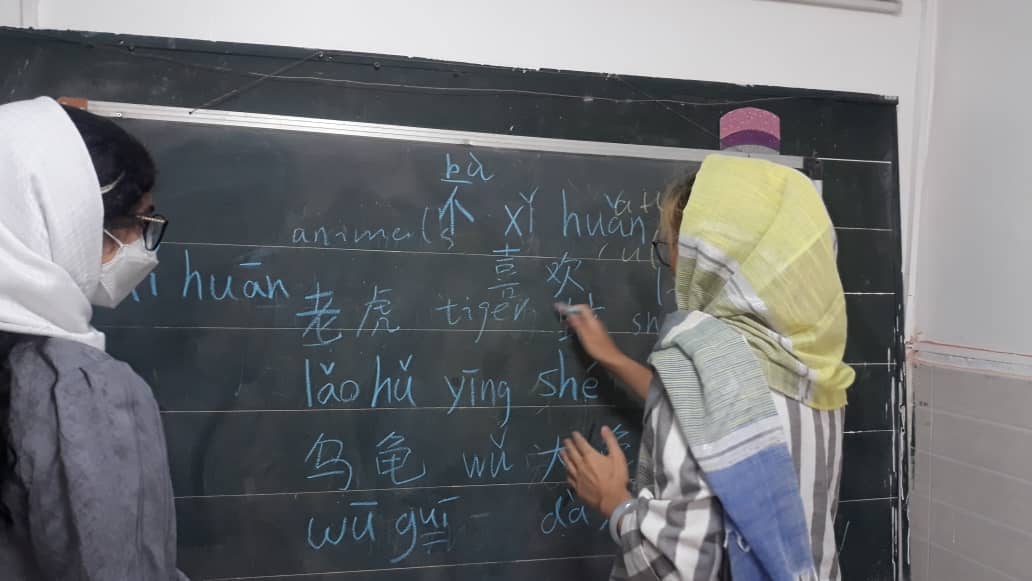 bà
animal 个 xǐ huān
喜 欢
huān
老 虎 tiger
lǎo hǔ yīng shé
乌 龟 wǔ 大
wū guī dà